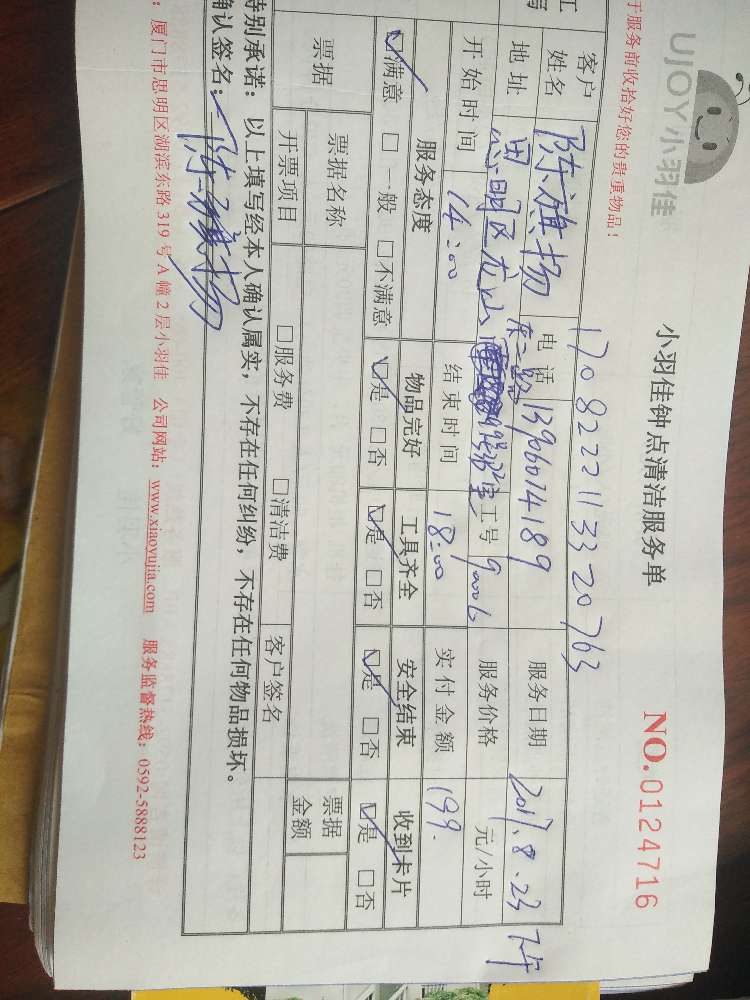 UJOY小羽佳
小羽佳钟点清洁服务单
NO.0124716
于服务前收拾好您的贵重物品！
1708222113320763
客户姓名 陈旗扬 电话 13906074189 服务日期 2017.8.23 下午
地址 思明区龙山 东二路 工号 服务价格 元/小时
开始时间 14:00 结束时间 18:00 实付金额 199.
服务态度 物品完好 工具齐全 安全结束 收到卡片
☑满意 □一般 □不满意 ☑是 □否 ☑是 □否 ☑是 □否 ☑是 □否
票据 票据名称 票据金额
开票项目 □服务费 □清洁费 客户签名
特别承诺：以上填写经本人确认属实，不存在任何纠纷，不存在任何物品损坏。
确认签名： 陈旗扬
：厦门市思明区湖滨东路 319 号 A 幢 2 层小羽佳 公司网站：www.xiaoyujia.com 服务监督热线：0592-5888123